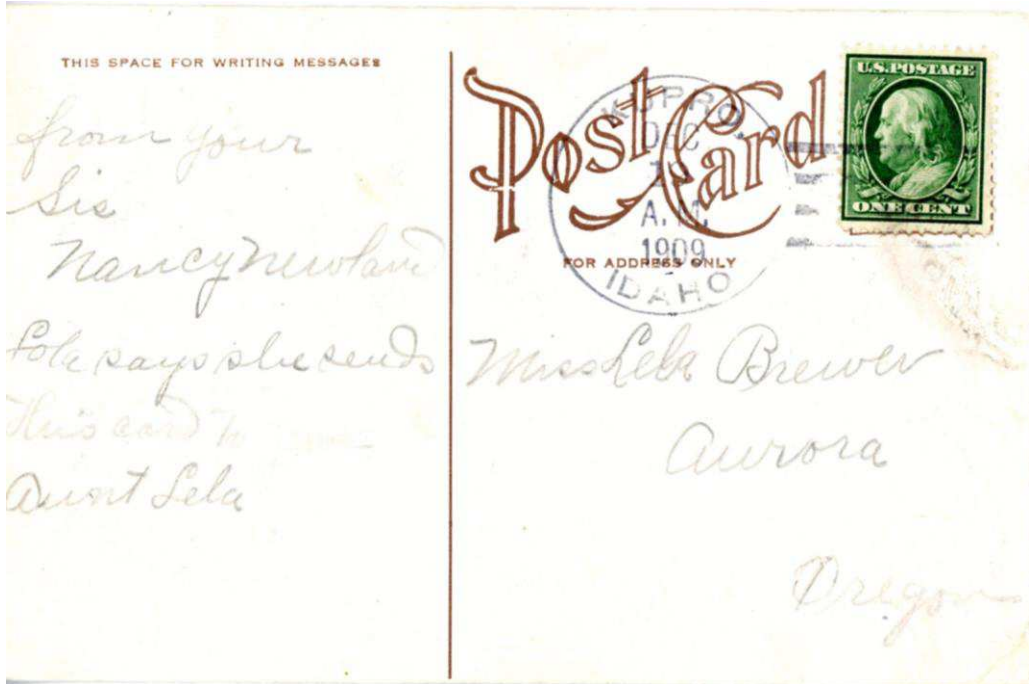 THIS SPACE FOR WRITING MESSAGES
from your
Sis
Nancy Newland
Lola says she sends
this card to
Aunt Lela
Post Card
KUPRO.
DEC
19
A.M.
1909
IDAHO
FOR ADDRESS ONLY
U.S. POSTAGE
ONE CENT
Miss Lela Brewer
Aurora
Oregon